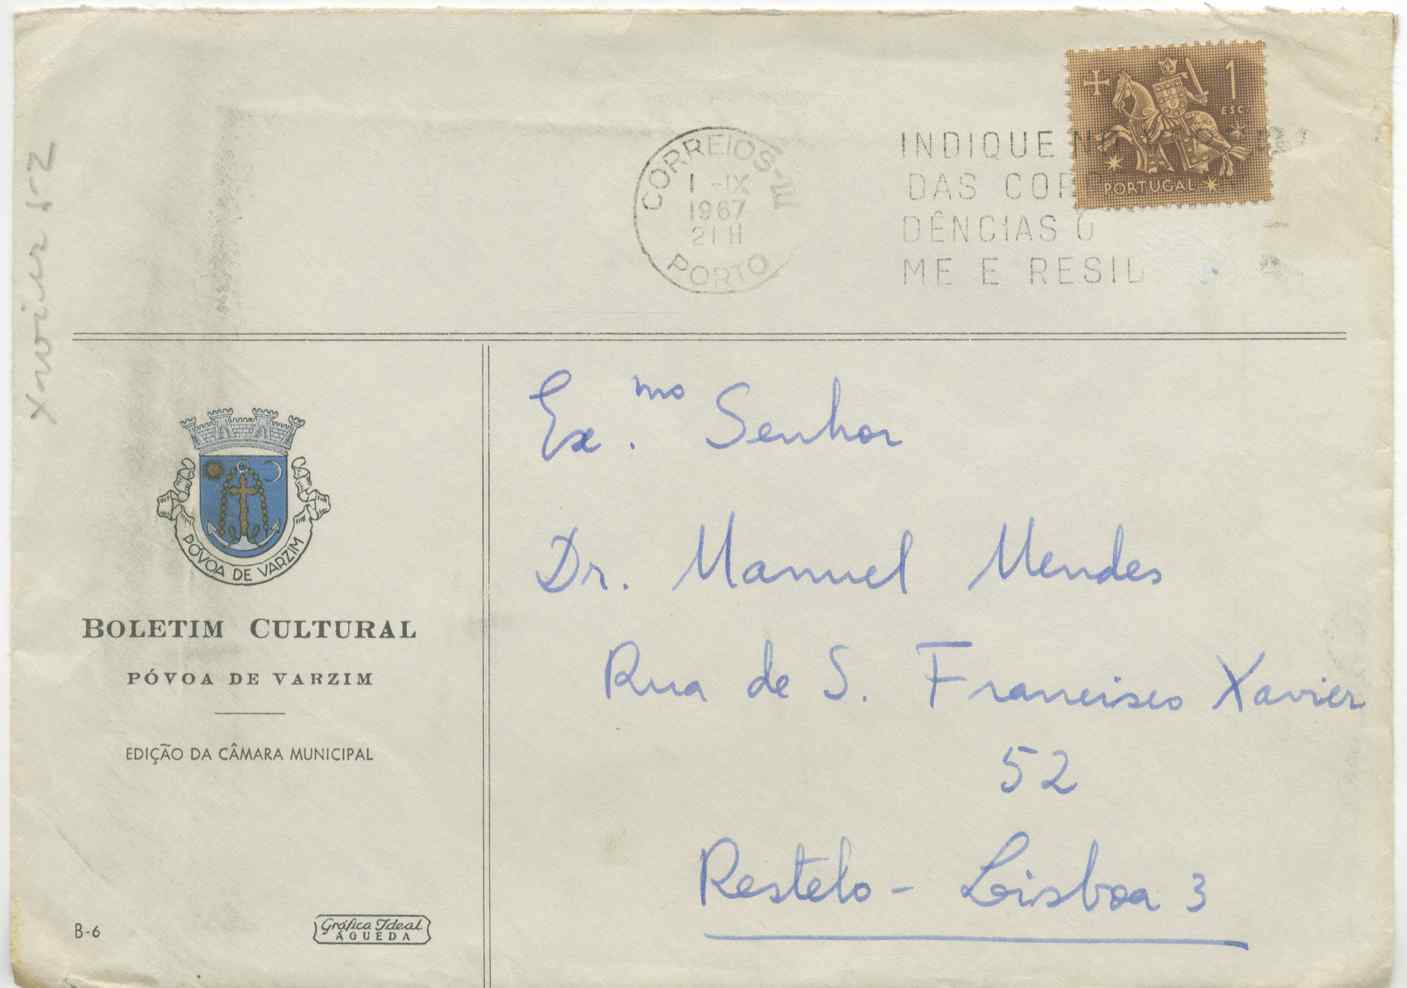 CORREIOS-
1 -IX
1967
21 H
PORTO
INDIQUE
DAS COR
DÊNCIAS O
ME E RESID
1
ESC.
PORTUGAL
xavier 52
Ex.mo Senhor
Dr. Manuel Mendes
Rua de S. Francisco Xavier
52
Restelo - Lisboa 3
PÓVOA DE VARZIM
BOLETIM CULTURAL
PÓVOA DE VARZIM
EDIÇÃO DA CÂMARA MUNICIPAL
B-6
Gráfica Ideal
ÁGUEDA